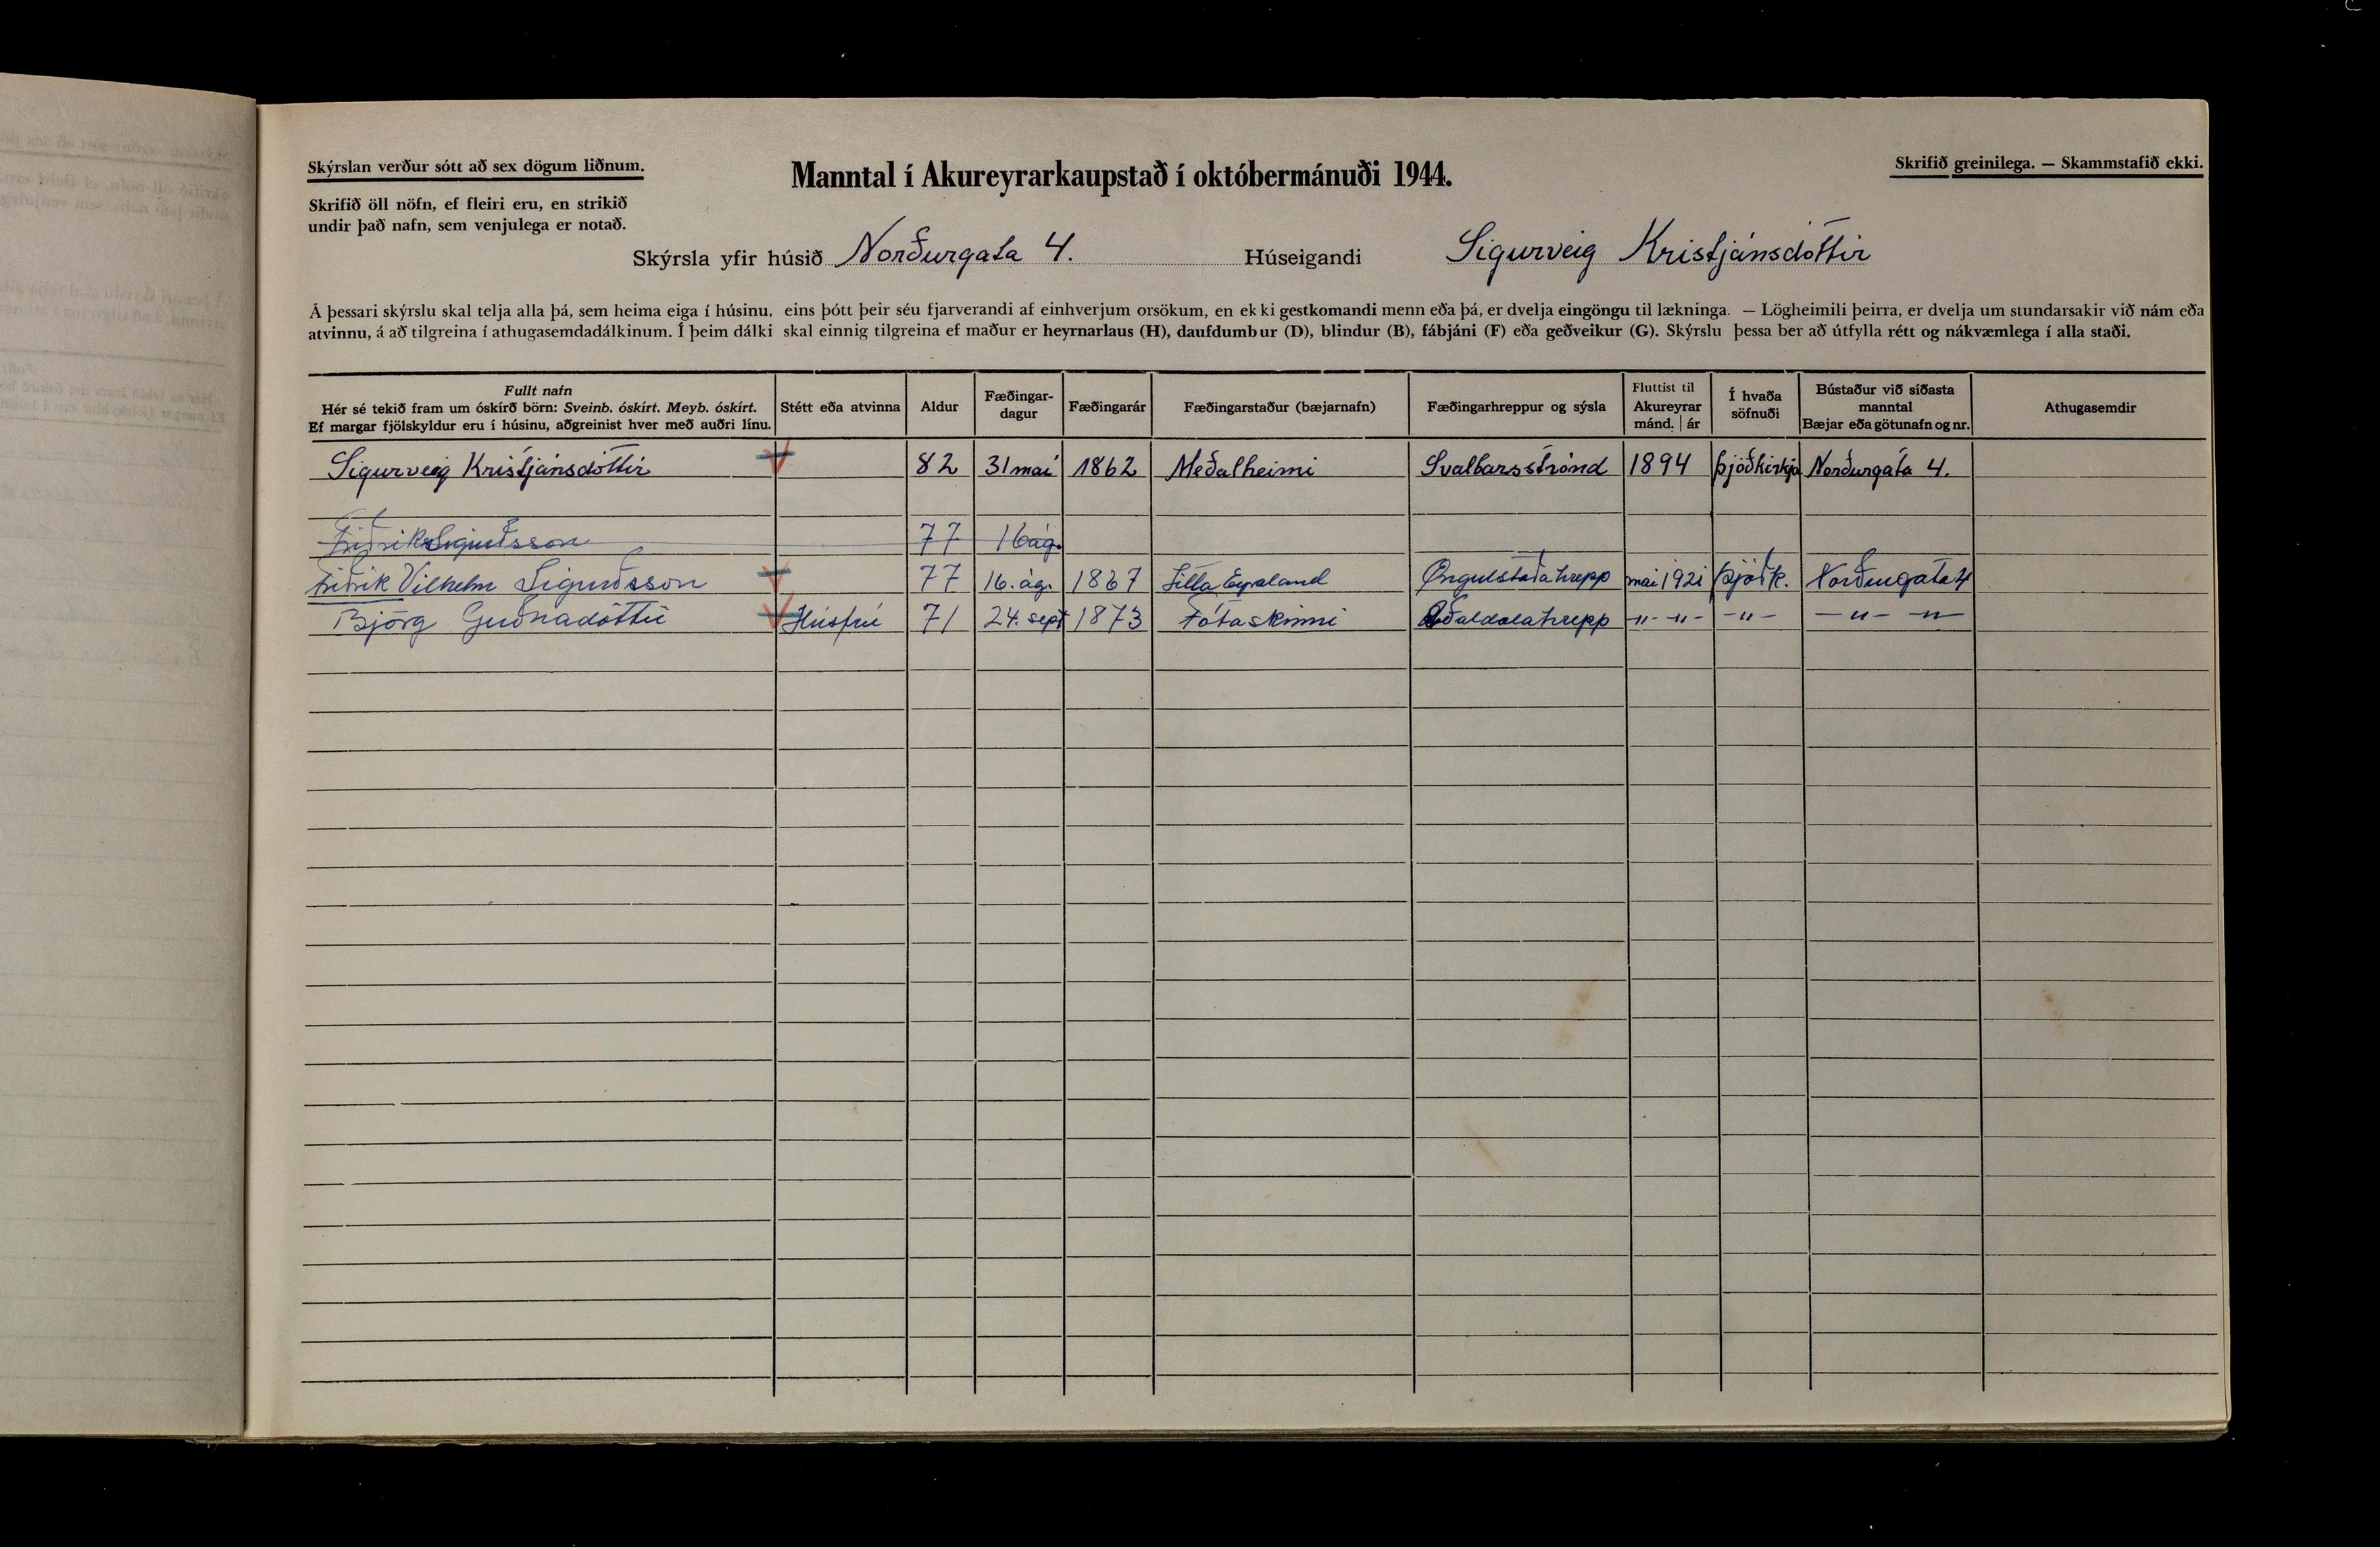 Skýrslan verður sótt að sex dögum liðnum.
Manntal í Akureyrarkaupstað í októbermánuði 1944.
Skrifið greinilega. — Skammstafið ekki.
Skrifið öll nöfn, ef fleiri eru, en strikið
undir það nafn, sem venjulega er notað.
Skýrsla yfir húsið Norðurgata 4. Húseigandi Sigurveig Kristjánsdóttir
Á þessari skýrslu skal telja alla þá, sem heima eiga í húsinu, eins þótt þeir séu fjarverandi af einhverjum orsökum, en ekki gestkomandi menn eða þá, er dvelja eingöngu til lækninga. — Lögheimili þeirra, er dvelja um stundarsakir við nám eða
atvinnu, á að tilgreina í athugasemdadálkinum. Í þeim dálki skal einnig tilgreina ef maður er heyrnarlaus (H), daufdumbur (D), blindur (B), fábjáni (F) eða geðveikur (G). Skýrslu þessa ber að útfylla rétt og nákvæmlega í alla staði.
Fullt nafn
Hér sé tekið fram um óskírð börn: Sveinb. óskírt. Meyb. óskírt.
Ef margar fjölskyldur eru í húsinu, aðgreinist hver með auðri línu.
Stétt eða atvinna
Aldur
Fæðingar-
dagur
Fæðingarár
Fæðingarstaður (bæjarnafn)
Fæðingarhreppur og sýsla
Fluttist til
Akureyrar
mánd. | ár
Í hvaða
söfnuði
Bústaður við síðasta
manntal
Bæjar eða götunafn og nr.
Athugasemdir
Sigurveig Kristjánsdóttir 82 31 maí 1862 Meðalheimi Svalbarsströnd 1894 þjóðkirkja Norðurgata 4.
Friðrik Sigurðsson 77 16 ág.
Friðrik Vilhelm Sigurðsson 77 16. ág. 1867 Litla Eyraland Öngulstaðahrepp mai 1921 þjóðk. Norðurgata 4
Björg Guðnadóttir Húsfrú 71 24. sept 1873 Fótaskinni Aðaldælahrepp -"- -"- -"- -"- -"-